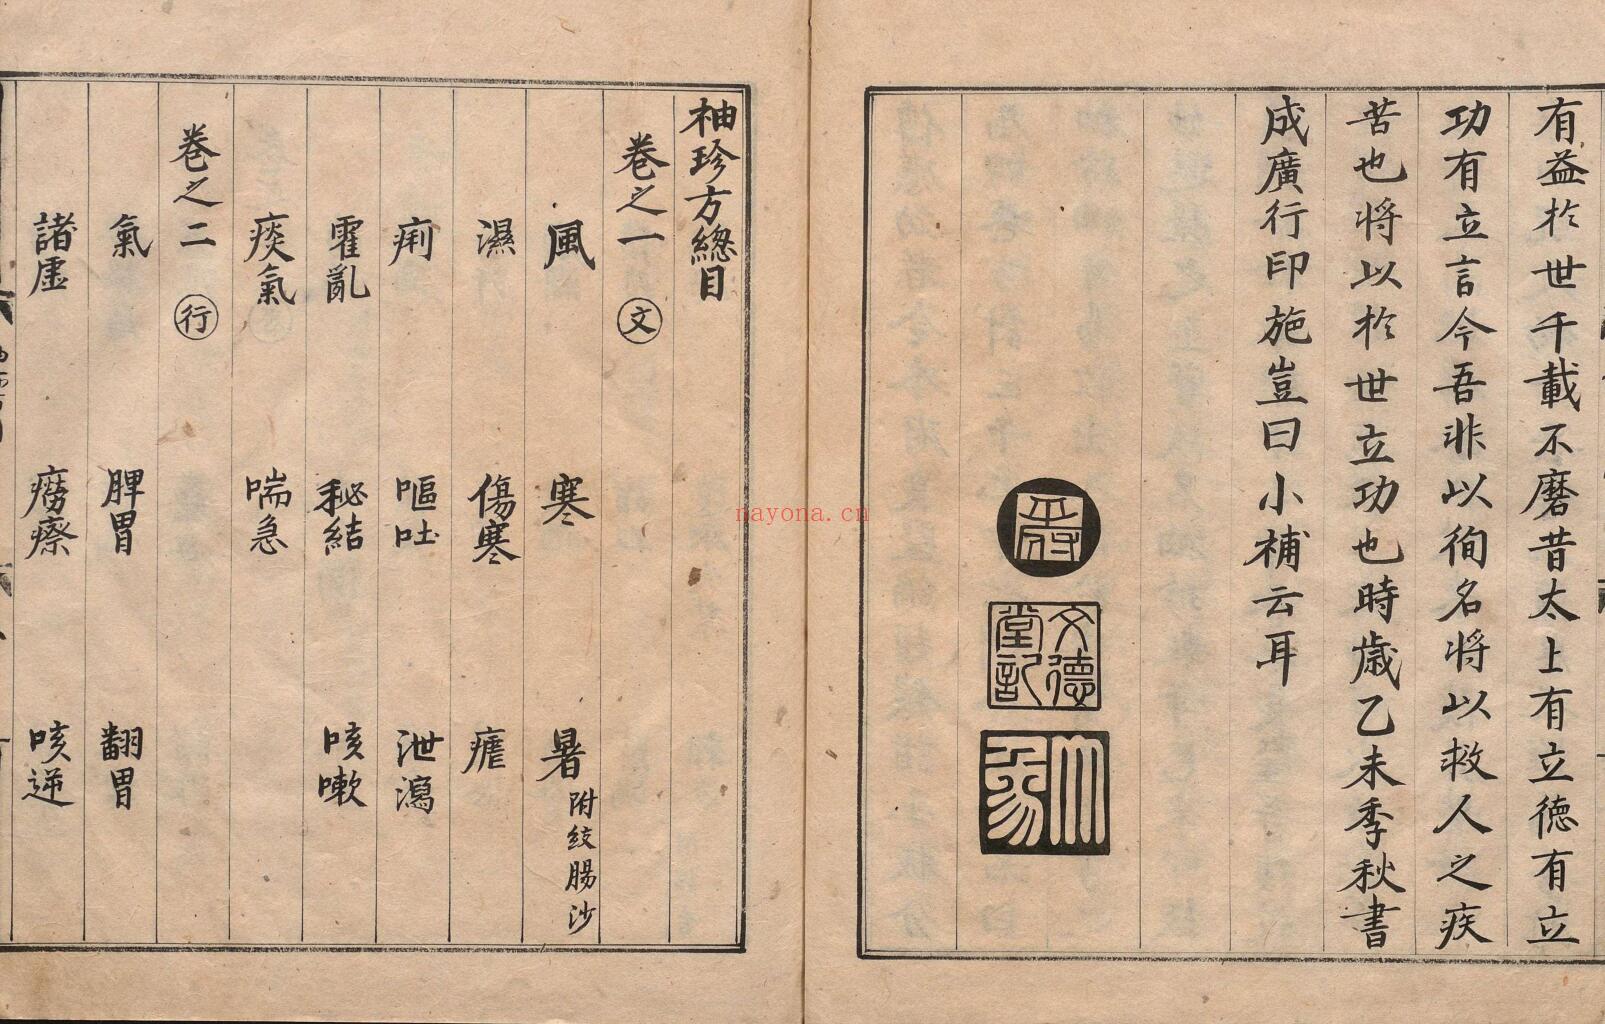 有益於世千載不磨昔太上有立德有立
功有立言今吾非以徇名將以救人之疾
苦也將以於世立功也時歲乙未季秋書
成廣行印施豈曰小補云耳
文德堂記
袖珍方緫目
卷之一 文
風 寒 暑 附絞腸沙
濕 傷寒 瘧
痢 嘔吐 泄瀉
霍亂 秘結 咳嗽
痰氣 喘急
卷之二 行
氣 脾胃 翻胃
諸虛 癆瘵 咳逆
nayona.cn